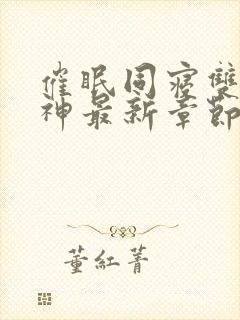 催眠同寢雙
神最新章節
董紅菁